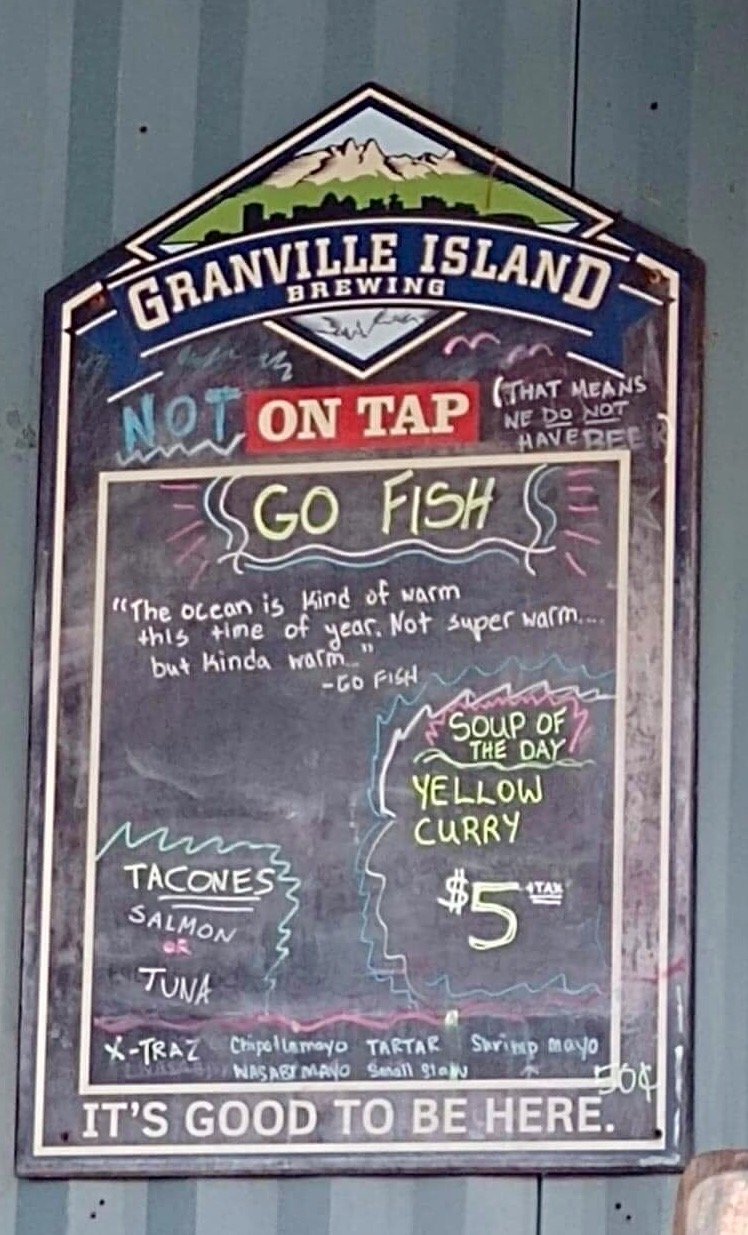 GRANVILLE ISLAND
BREWING
NOT ON TAP
(THAT MEANS
WE DO NOT
HAVE BEER
GO FISH
"The ocean is kind of warm
this time of year. Not super warm....
but kinda warm..."
-GO FISH
SOUP OF
THE DAY
YELLOW
CURRY
$5 +TAX
TACONES
SALMON
OR
TUNA
X-TRAZ
Chipotle mayo TARTAR Shrimp mayo
WASABI MAYO Small Slaw
50¢
IT'S GOOD TO BE HERE.